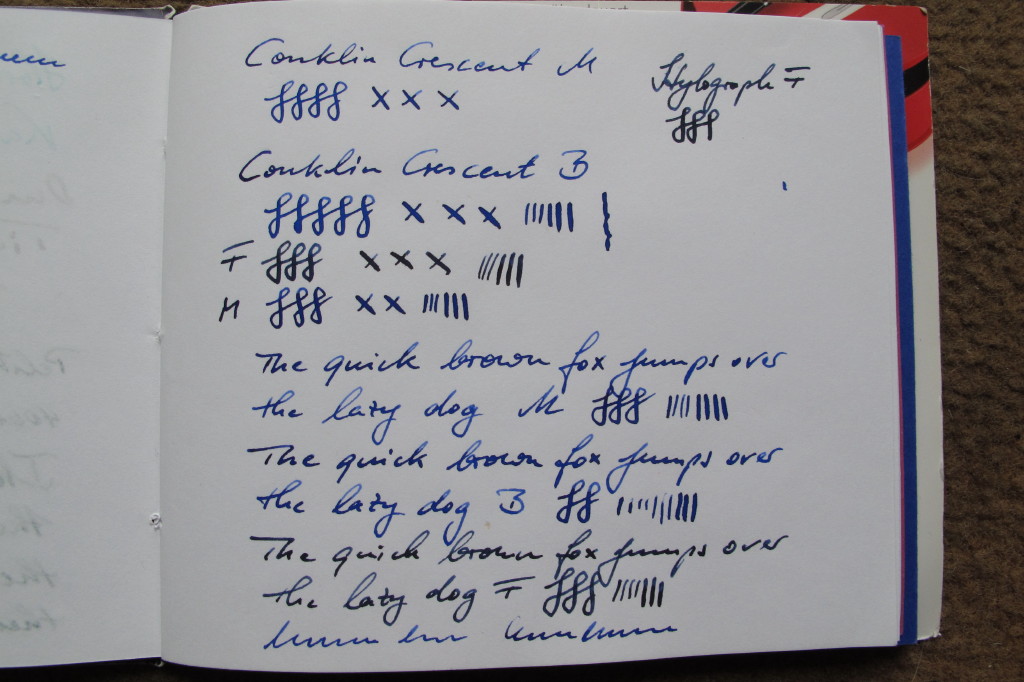 Conklin Crescent M
ffff x x x
Stylograph F
fff
Conklin Crescent B
fffff x x x
F fff x x x
M fff x x
The quick brown fox jumps over
the lazy dog M fff
The quick brown fox jumps over
the lazy dog B ff
The quick brown fox jumps over
the lazy dog F fff